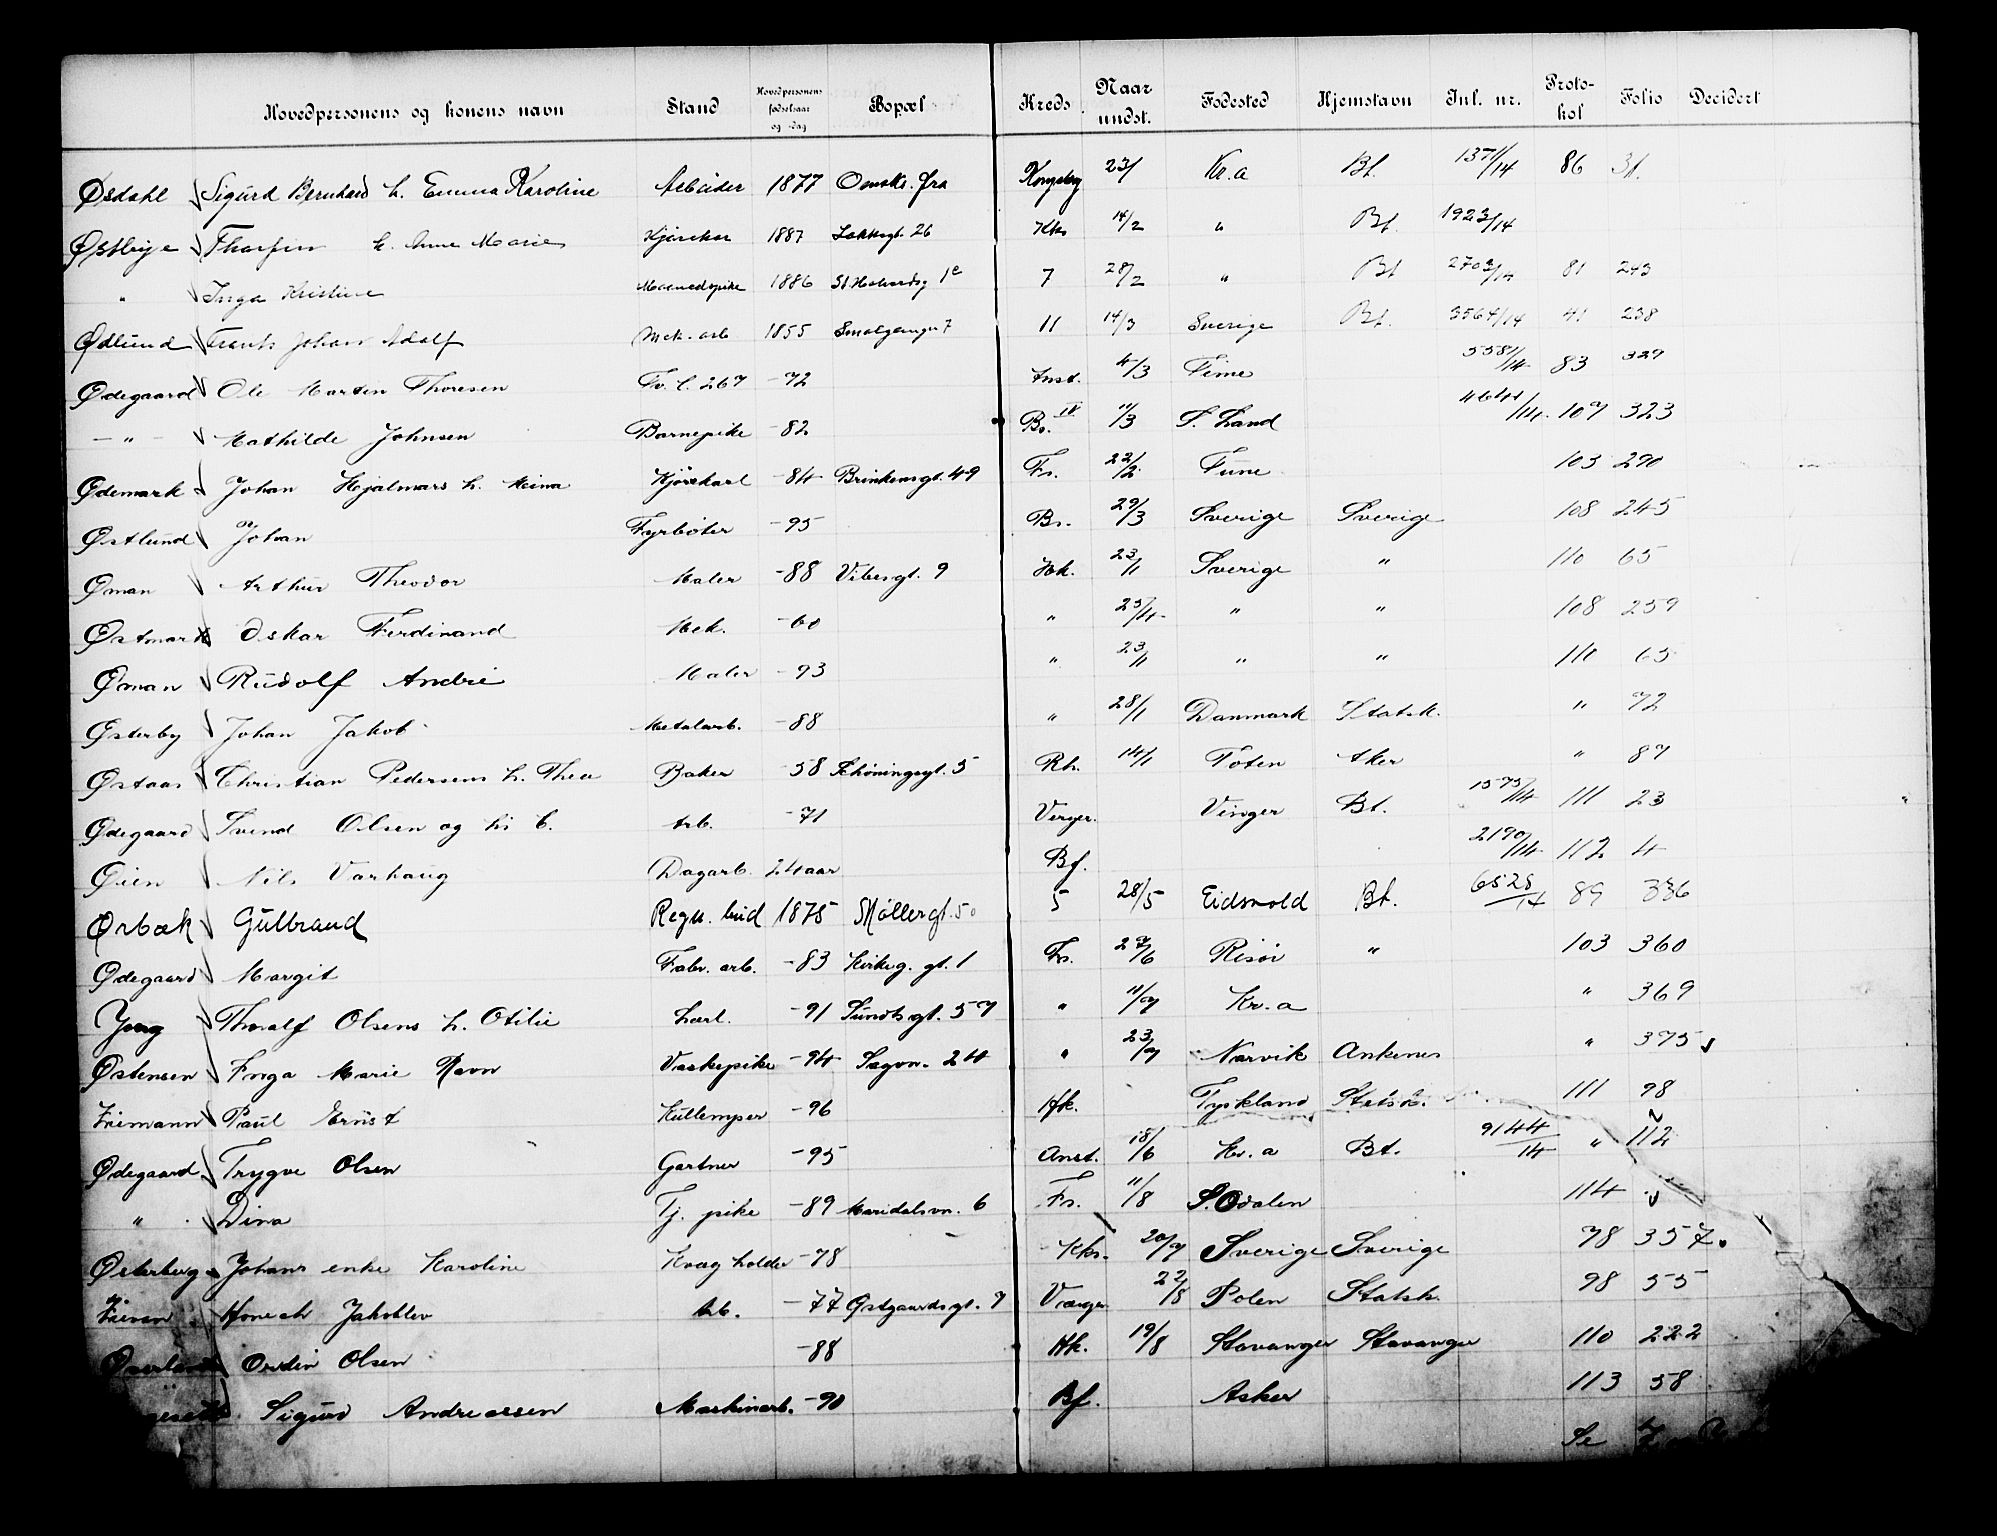 Hovedpersonens og konens navn Stand Hovedpersonens fødselsaar og -dag Bopæl Kreds Naar undst. Fødested Hjemstavn Inl. nr. Protokol Folio Decidert
Øsdahl Sigurd Bernhard h. Emma Karoline Arbeider 1877 Omstr. fra Kongsbg 23/ Kr.a Bt. 1371/14 86 31.
Østbye Thorfin h. Anne Marie Kjørekar 1887 26 Kks 14/2 " Bt. 1923/14
" Inga Kristine 1886 St. Halvardsg 1c 7 28/2 " Bt 2703/14 81 243
Ødlund Frants Johan Adolf Mek. arb 1855 Smalgangen 7 11 14/3 Sverige Bt. 3564/14 41 238
Ødegaard Ole Martin Thoresen Fv. l. 267 -72 Anst. 4/3 5581/14 83 329
- " - Mathilde Johnsen Barnepike -82 Bs. IV 11/3 S. Land 4644/14. 107 323
Ødemark Johan Hjalmars h. Mina Kjørekarl -84 Brinkensgt. 49 Fs. 22/2 103 290
Østlund Johan Fyrbøter -95 Bs. 29/3 Sverige Sverige 108 245
Øman Arthur Theodor Maler -88 Vibesgt. 9 Hk. 23/1 Sverige " 110 65
Østmark Oskar Ferdinand Mek. -60 " 23/4 " " 108 259
Øman Rudolf Andre Maler -93 " 23/1 " " 110 65
Østerby Johan Jakob Metalarb. -88 " 28/1 Danmark Statsk. " 72
Østaas Christian Pedersens h. Thea Baker -58 Schøningsgt. 5 Rh. 14/1 Toten Aker " 87
Ødegaard Svend Olsen og h. Arb. -71 Vinger Bt. 1575/14 111 23
Øien Nils Varhaug Dagarb. 24 aar Bf. 2190/14 112 4
Ørbæk Gulbrand Regn. bud 1875 Møllergt. 50 5 28/5 Eidsvold Bt. 6528/14 89 336
Ødegaard Margit Fabr. arb. -83 Kirkeg. gt. 1 Fs. 27/6 Risør " 103 360
Thoralf Olsens h. Otilie -91 Sundtsgt. 57 " 11/7 Kr. a " 369
Østensen Inga Marie Ravn Vaskepike -94 Sagvn. 24 " 23/7 Narvik Ankenes " 375
Paul Ernst -96 Hk. Tyskland Statsk. 111 98
Ødegaard Trygve Olsen Gartner -95 Anst. 18/6 Kr. a Bt. 9144/14 " 112
" Dina Tj. pike -89 Maridalsvn. 6 Fs. 11/8 S. Odalen 114
Østerberg Johans enke Karoline Kvægholder -78 Kks. 20/7 Sverige Sverige 78 357
Jakoblev Arb. -77 Østgaardsgt. 7 22/8 Polen Statsk. 98 55
Olsen -88 Hk. 19/8 Stavanger Stavanger 110 222
Sigurd Andreassen Maskinarb. -90 Bf. Asker 113 58
Se